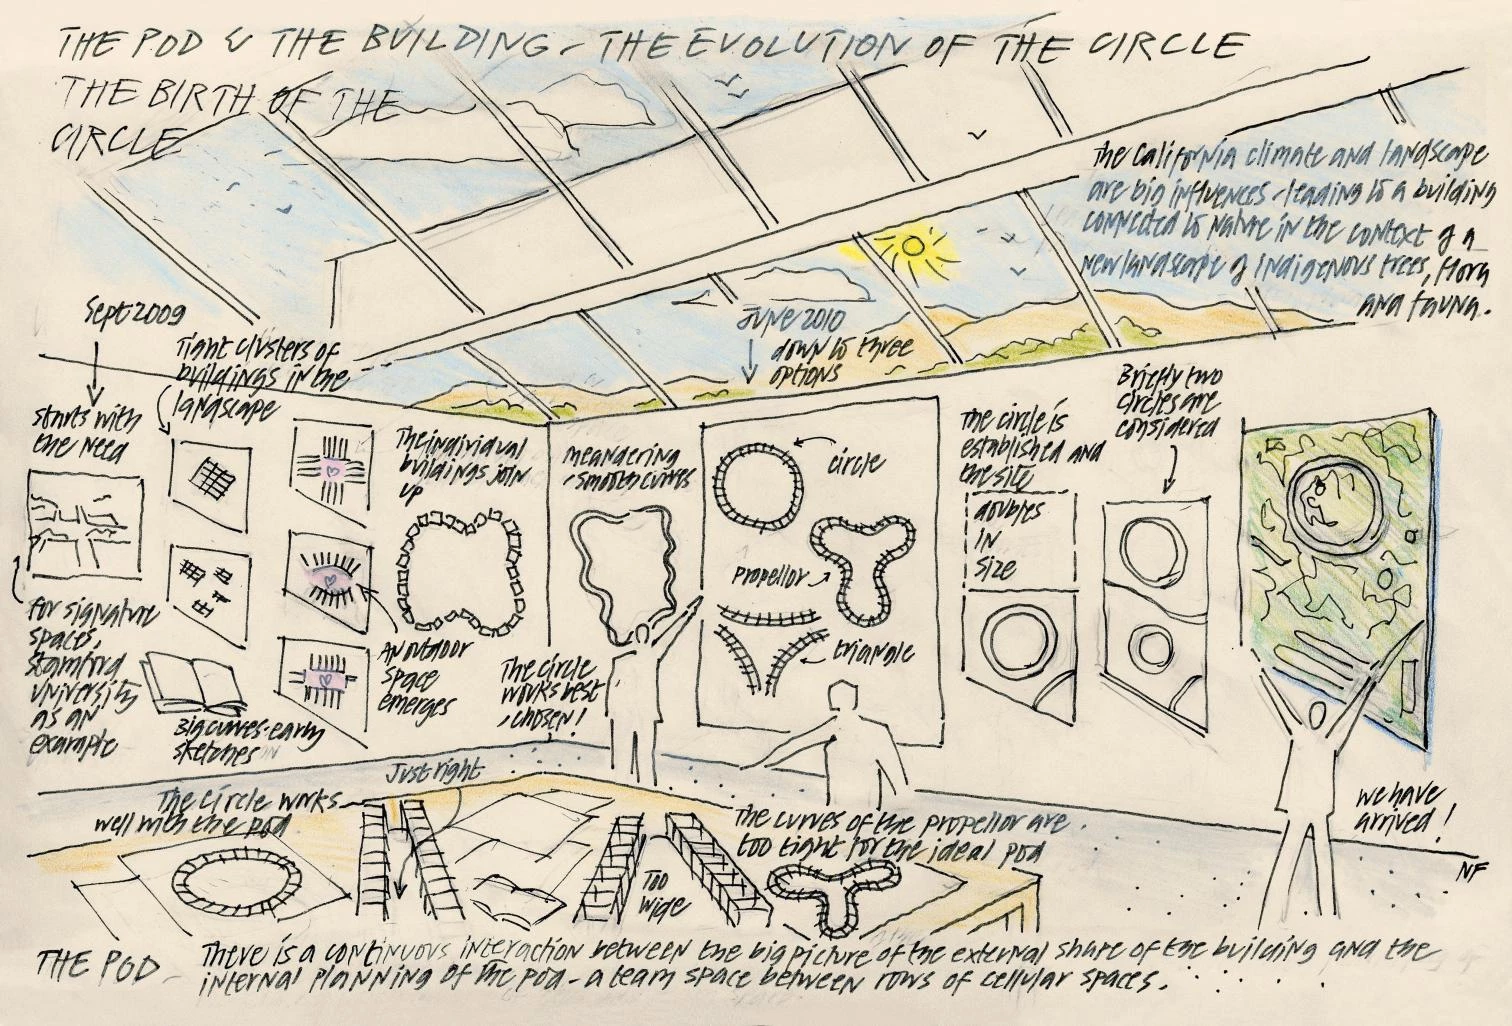 THE POD & THE BUILDING - THE EVOLUTION OF THE CIRCLE
THE BIRTH OF THE
CIRCLE
The California climate and landscape
are big influences - leading to a building
connected to nature in the context of a
new landscape of indigenous trees, flora
and fauna.
Sept 2009
starts with
the need
for signature
spaces,
Stamford
University
as an
example
Tight clusters of
buildings in the
landscape
Big curves - early
sketches
The individual
buildings join
up
An outdoor
space
emerges
meandering
- smooth curves
The circle
works best
- chosen!
June 2010
down to three
options
circle
propellor
triangle
The circle is
established and
the site
doubles
IN
size
Briefly two
circles are
considered
we have
arrived!
NF
Just right
The circle works
well with the pod
Too
wide
The curves of the propellor are
too tight for the ideal pod
THE POD - There is a continuous interaction between the big picture of the external share of the building and the
internal planning of the pod - a team space between rows of cellular spaces.